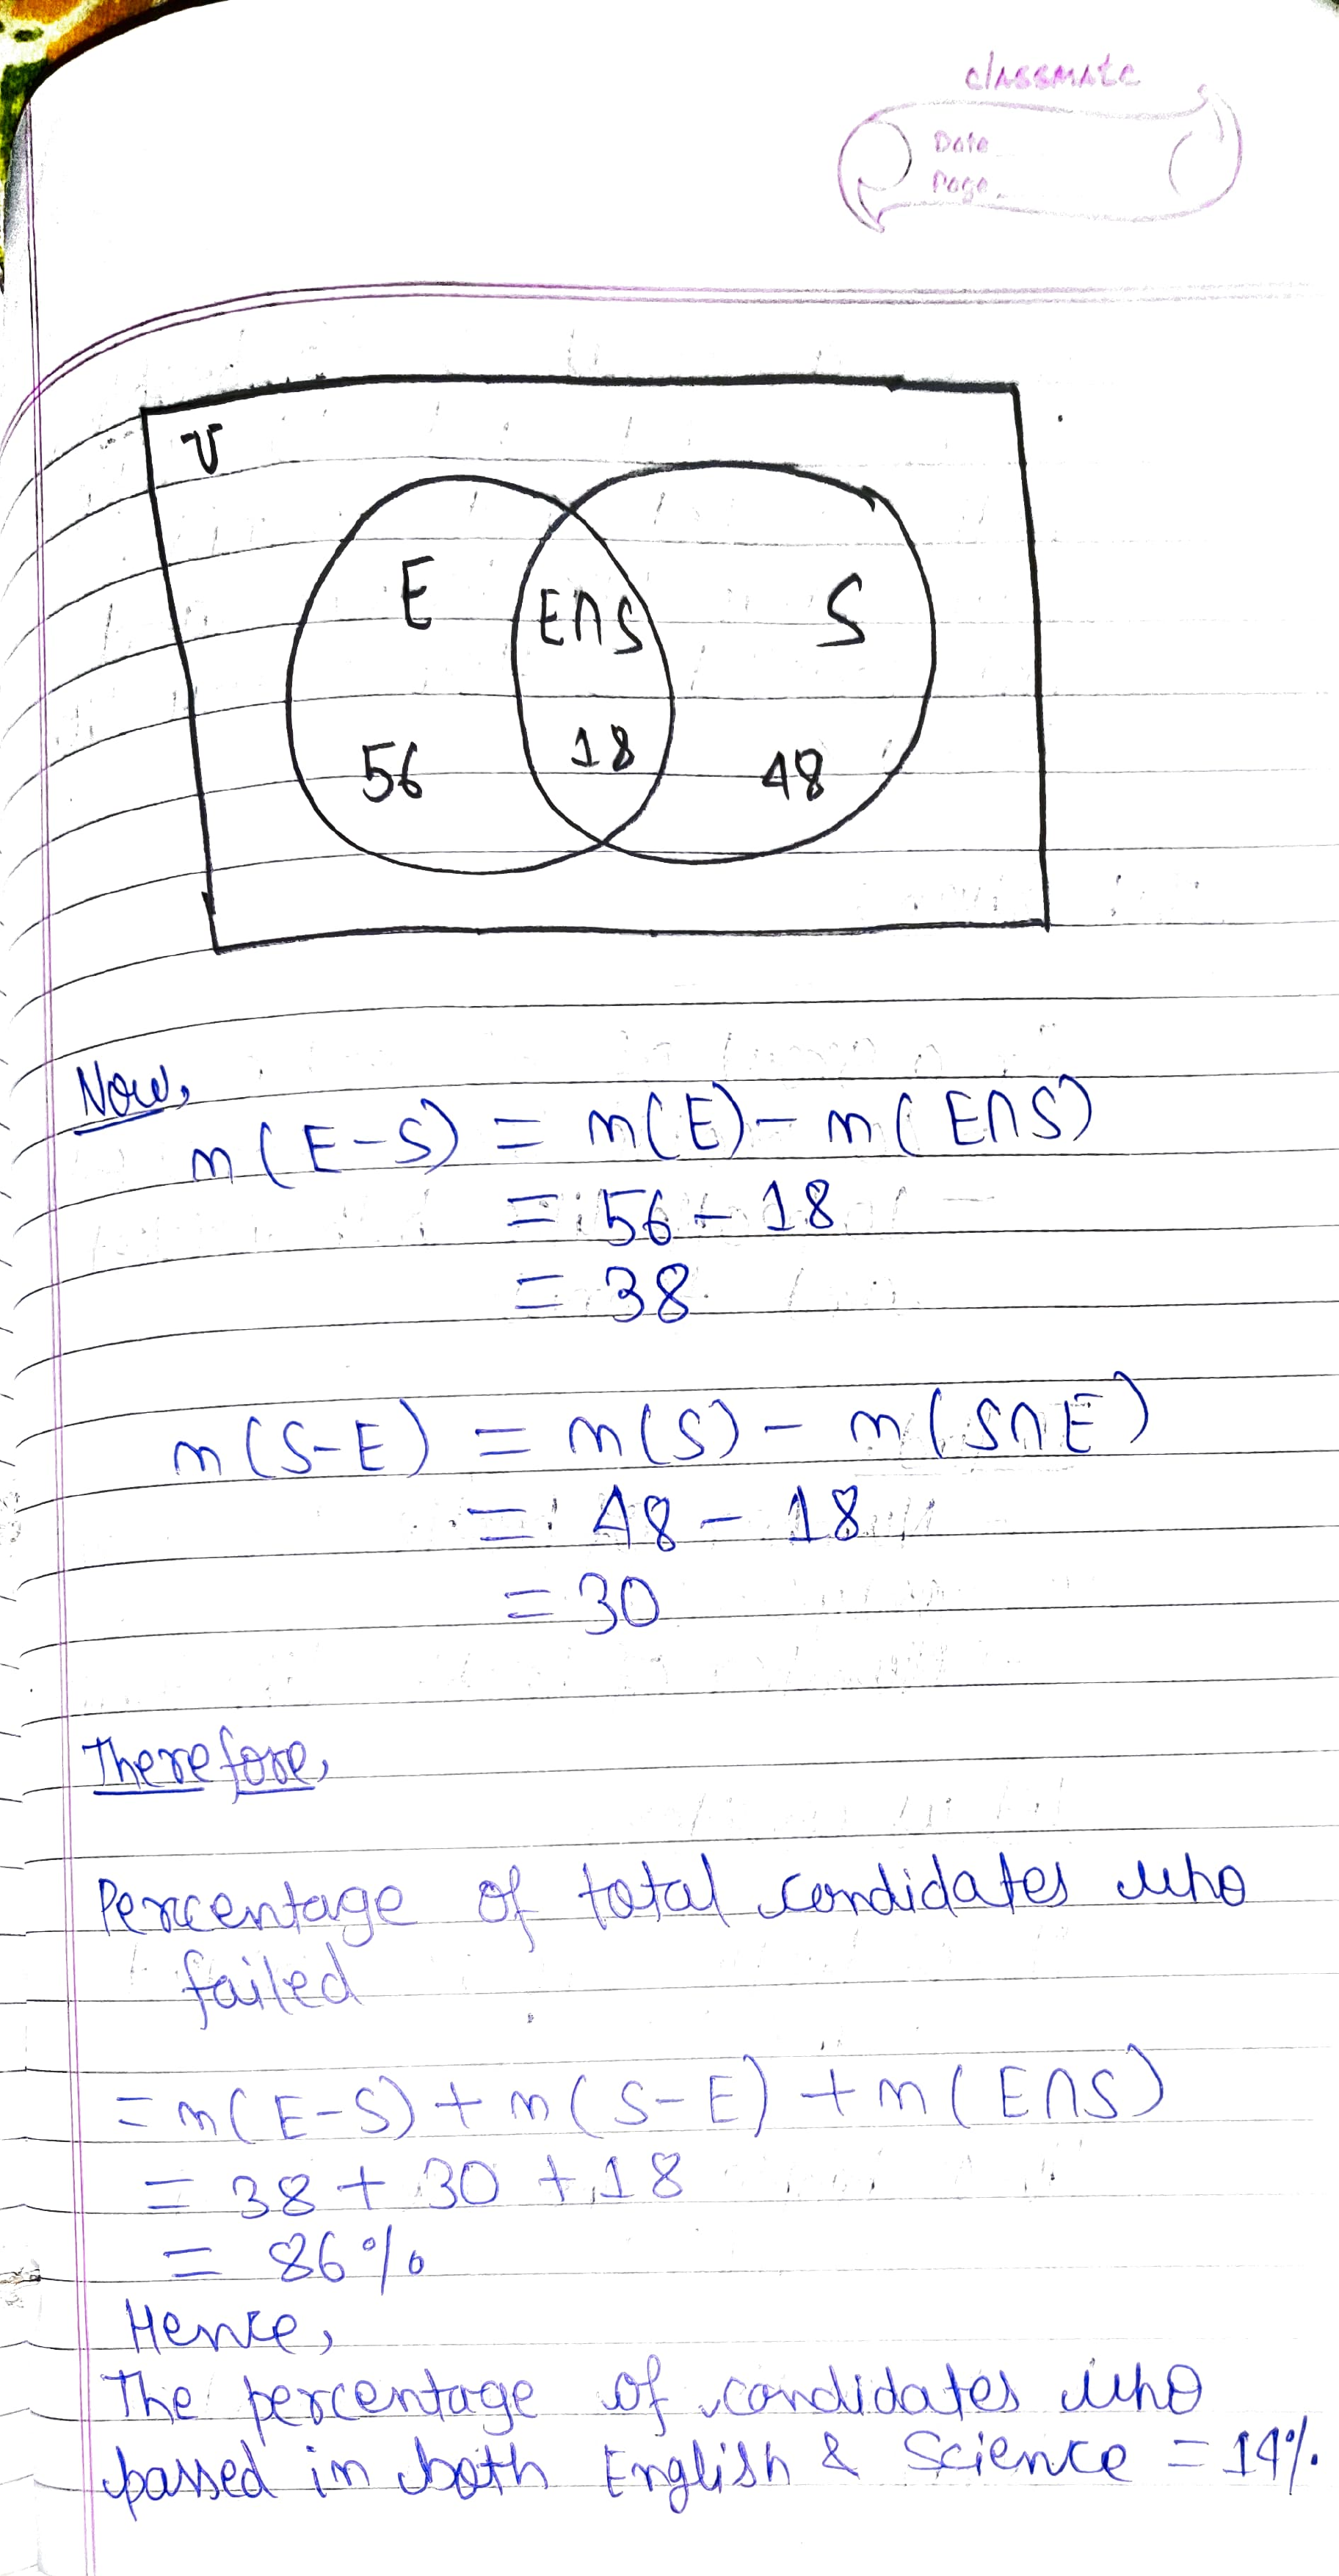 classmate
Date
Page
U
E
E∩S
S
56
18
48
Now,
n(E-S) = n(E) - n(E∩S)
= 56 - 18
= 38
n(S-E) = n(S) - n(S∩E)
= 48 - 18
= 30
Therefore,
Percentage of total candidates who
failed
= n(E-S) + n(S-E) + n(E∩S)
= 38 + 30 + 18
= 86%
Hence,
The percentage of candidates who
passed in both English & Science = 14%.